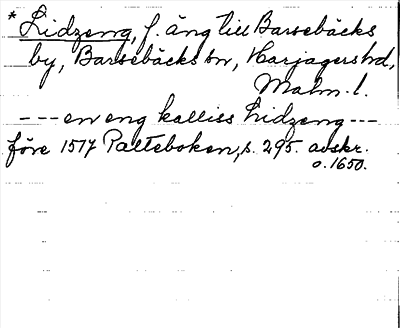 * Lidzeng, f. äng till Barsebäcks
by, Barsebäcks sn, Harjagers hd,
Malm. l.
--- en eng kalliss Lidzeng ---
före 1517 Palteboken, s. 295. avskr.
o. 1650.